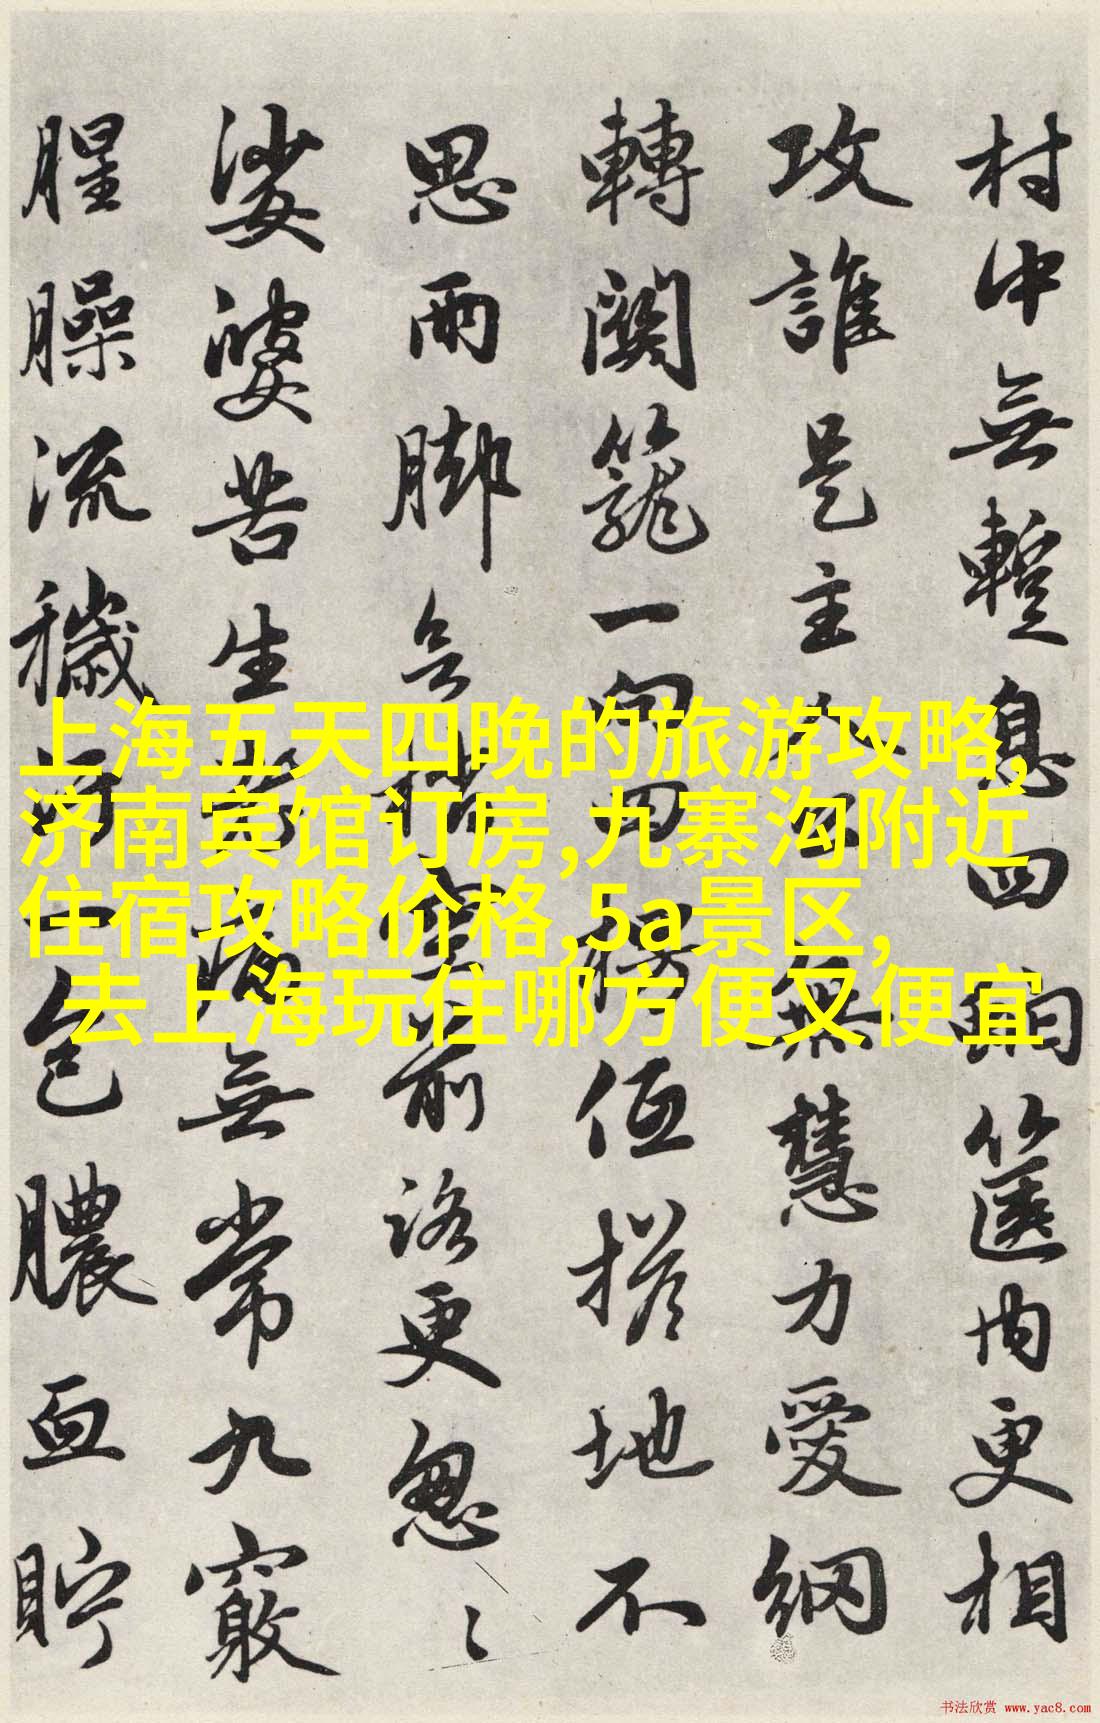 村中無蹔息四蛇篋内更相
攻誰是主
無慧力愛網
轉關籠一向四
伍搓地不
思兩脚
前路更忽〻
娑婆苦生
無常九竅
腥臊流穢
包膿血貯
上海五天四晚的旅游攻略,
济南宾馆订房,九寨沟附近
住宿攻略价格,5a景区,
去上海玩住哪方便又便宜
书法欣赏 www.yac8.com